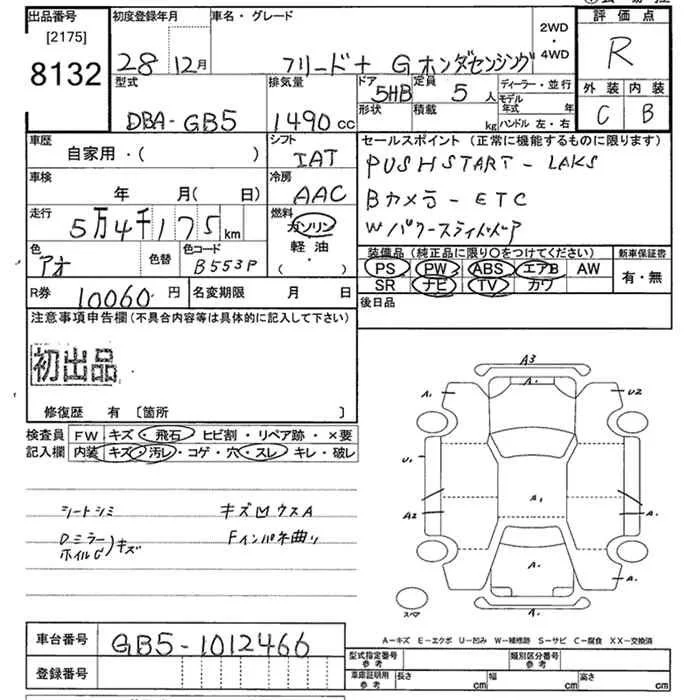 出品番号 初度登録年月 車名・グレード 評価点
[2175]
8132
28 12月 フリード+ Gホンダセンシング 2WD・4WD R
型式 排気量 ドア 定員 ディーラー・並行 外装 内装
DBA-GB5 1490cc 5HB 5人 モデル年式 年 C B
形状 積載 kg ハンドル 左・右
車歴 シフト セールスポイント (正常に機能するものに限ります)
自家用・( ) IAT PUSHSTART-LAKS
車検 冷房 Bカメラ-ETC
年 月(日) AAC Wパワースライドドア
走行 燃料
5万4千175km ガソリン
軽油
( ・ )
色 色替 色コード 装備品 (純正品に限り○をつけてください) 新車保証書
アオ B553P PS PW ABS エアB AW 有・無
R券 10060円 名変期限 月 日 SR ナビ TV カワ
後日品
注意事項申告欄 (不具合内容等は具体的に記入して下さい)
初出品
修復歴 有 [箇所 ]
検査員 FW キズ・飛石・ヒビ割・リペア跡・×要
記入欄 内装 キズ・汚レ・コゲ・穴・スレ・キレ・破レ
A3
A. A. U2
U. A.
A2 A.
A. A.
A.
スペア
シートシミ キズMウスA
Dミラー ホイルC)キズ Fインパネ曲り
A-キズ E-エクボ U-凹み W-補修跡 S-サビ C-腐食 XX-交換済
車台番号 GB5-1012466
登録番号
型式指定番号 参考 類別区分番号 参考
車庫証明用 参考 長さ cm 幅 cm 高さ cm